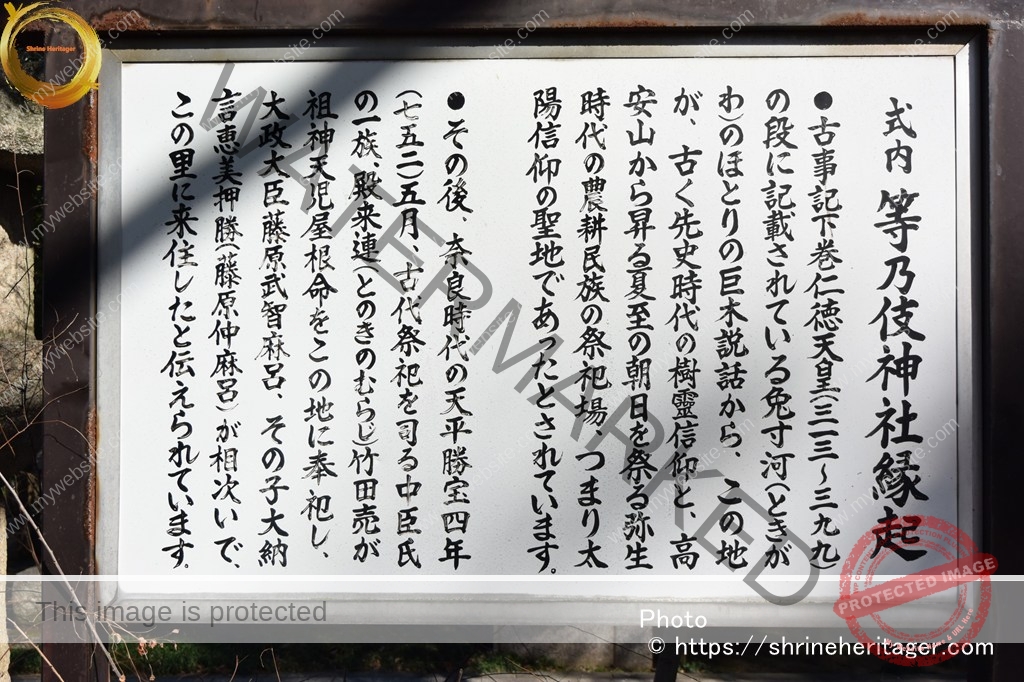 式内 等乃伎神社縁起
●古事記下巻仁徳天皇(三一三〜三九九)
の段に記載されている兔寸河(ときが
わ)のほとりの巨木説話から、この地
が、古く先史時代の樹霊信仰と、高
安山から昇る夏至の朝日を祭る弥生
時代の農耕民族の祭祀場、つまり太
陽信仰の聖地であったとされています。
●その後、奈良時代の天平勝宝四年
(七五二)五月、古代祭祀を司る中臣氏
の一族、殿来連(とのきのむらじ)竹田売が
祖神天児屋根命をこの地に奉祀し、
大政大臣藤原武智麻呂、その子大納
言恵美押勝(藤原仲麻呂)が相次いで、
この里に来住したと伝えられています。
Shrine Heritager
WATERMARKED
www.mywebsite.com
PROTECTED IMAGE
This image is protected
Photo
© https://shrineheritager.com